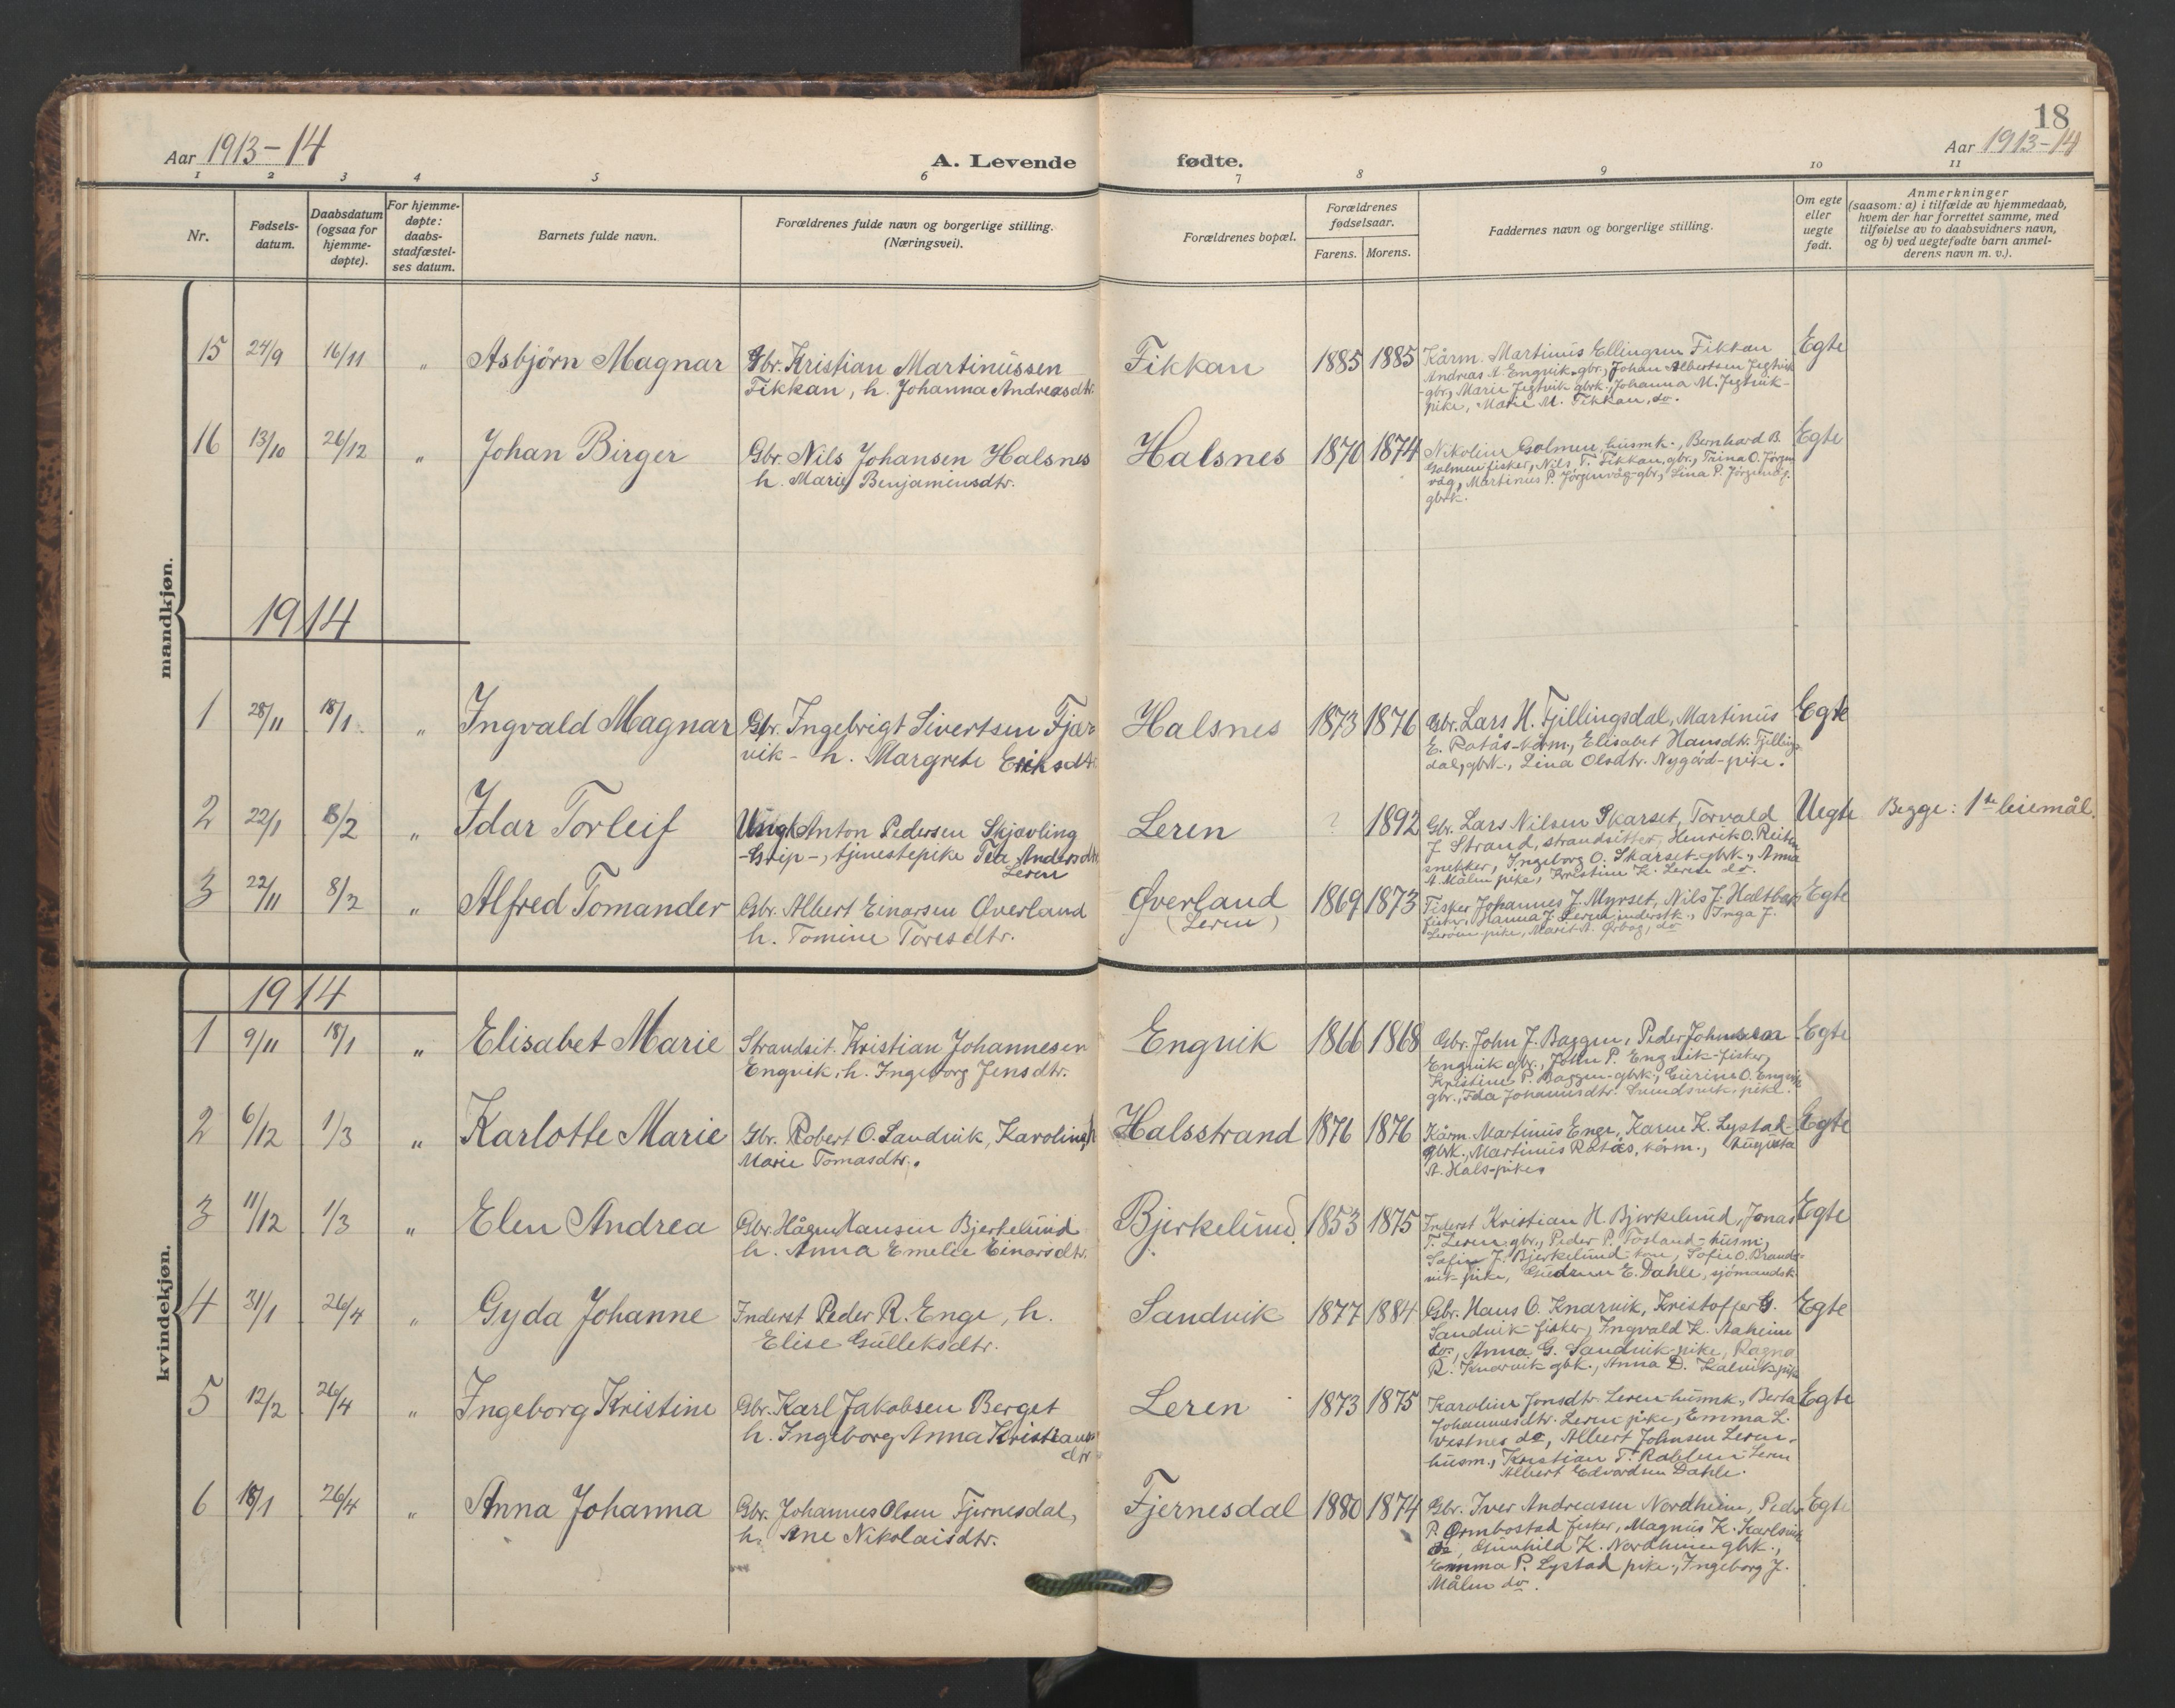 18
Aar 1913-14
A. Levende fødte.
Aar 1913-14
1 2 3 4 5 6 7 8 9 10 11
Nr.
Fødsels-
datum.
Daabsdatum
(ogsaa for
hjemme-
døpte).
For hjemme-
døpte:
daabs-
stadfæstel-
ses datum.
Barnets fulde navn.
Forældrenes fulde navn og borgerlige stilling.
(Næringsvei).
Forældrenes bopæl.
Forældrenes
fødselsaar.
Farens. Morens.
Faddernes navn og borgerlige stilling.
Om egte
eller
uegte
født.
Anmerkninger
(saasom: a) i tilfælde av hjemmedaab,
hvem der har forrettet samme, med
tilføielse av to daabsvidners navn,
og b) ved uegtefødte barn anmel-
derens navn m. v.).
mandkjøn.
15 24/9 16/11 " Asbjörn Magnar
Gbr. Kristian Martinussen
Fikkan, h. Johanna Andreasdtr.
Fikkan 1885 1885
Kårm. Martinus Ellingsen Fikkan
Andreas A. Engvik gbr., Johan Albertsen Jegtvik
gbr., Marie Jegtvik gbrk. Johanna M. Jegtvik-
pike, Marie M. Fikkan, do.
Egte
16 13/10 26/12 " Johan Birger
Gbr. Nils Johansen Halsnes
h. Marie Benjamensdtr.
Halsnes 1870 1874
Nikoline Golmen husmk., Bernhard B.
Golmen fisker, Nils T. Fikkan, gbr., Trina O. Jörgen
våg, Martinus P. Jörgenvåg gbr., Lina P. Jörgenvåg
gbrk.
Egte
1914
1 28/11 18/1 " Ingvald Magnar
Gbr. Ingebrigt Sivertsen Fjær
vik - h. Margrete Eriksdtr.
Halsnes 1873 1876
Gbr. Lars H. Fjillingsdal, Martinus
E. Rotås-kårm., Elisabet Hansdtr. Fjillings
dal, gbrk., Lina Olsdtr. Nygård-pike.
Egte
2 22/1 8/2 " Idar Torleif
Ungk. Anton Pedersen Skjavling
-Grip-, tjenestepike Tea Andersdtr.
Leren
Leren ? 1892
Gbr. Lars Nilsen Skarset, Torvald
J. Strand, strandsitter, Henrik O. Reiten
snekker, Ingeborg O. Skarset gbrk., Anna
A. Målen pike, Kristine K. Leren do.
Uegte Begge: 1ste leiemål.
3 22/11 8/2 " Alfred Tomander
Gbr. Albert Einarsen Överland
h. Tomine Toresdtr.
Øverland
(Leren)
1869 1873
Fisker Johannes J. Myrset, Nils J. Holtbak
Hanna J. Leren inderstk., Inga J.
Leren pike, Marit A. do
Egte
kvindekjøn.
1914
1 9/11 18/1 " Elisabet Marie
Strandsit. Kristian Johannesen
Engvik, h. Ingeborg Jensdtr.
Engvik 1866 1868
Gbr. John J. Baggen, Peder Johnsen
Engvik gbr., John P. Engvik-fisker,
Kristine P. Baggen-gbrk., Eurine O. Engvik
gbr., Ida Johannsdtr. Sundsvik, pike.
Egte
2 6/12 1/3 " Karlotte Marie
Gbr. Robert O. Sandvik, Karoline
Marie Tomasdtr.
Halsstrand 1876 1876
Kårm. Martinus Enge, Karen K. Lystad
gbrk., Martinus Rotås, kårm., Augusta
A. Hals-pike
Egte
3 11/12 1/3 " Elen Andrea
Gbr. Hågen Hansen Bjerkelund
h. Anna Emelie Einarsdtr.
Bjerkelund. 1853 1875
Inderst Kristian H. Bjerkelund, Jonas
T. Leren, gbr., Peder P. Fosland-husm,
Sofie J. Bjerkelund-kon, Sofie O. Brands-
vik pike, Gudrun E. Dahle, sjömandsk.
Egte
4 31/1 26/4 " Gyda Johanne
Inderst Peder R. Enge, h.
Elise Gulleksdtr.
Sandvik 1877 1884
Gbr. Hans O. Knarvik, Kristoffer G.
Sandvik-fisker, Ingvald K. Aaheim
do., Anna G. Sandvik pike, Ragna
R. Knarvik gbk., Anna D. Kalvik pike
Egte
5 12/2 26/4 " Ingeborg Kristine
Gbr. Karl Jakobsen Berget
h. Ingeborg Anna Kristians
dtr
Leren 1873 1875
Karoline Jonsdtr. Leren husmk., Berta
Johannesdtr. Leren pike, Emma L.
Vestnes do, Albert Johnsen Leren-
husm., Kristian T. Leren
Albert Edvardsen Dahle.
Egte
6 18/1 26/4 " Anna Johanna
Gbr. Johannes Olsen Fjernesdal,
h. Ane Nikolaisdtr.
Fjernesdal 1880 1874
Gbr. Iver Andreasen Nordheim, Peder
P. Ormbostad fisker, Magnus K. Karlsvik
do, Gunhild K. Nordheim gbk.,
Emma P. Lystad pike, Ingeborg J.
Målen do.
Egte